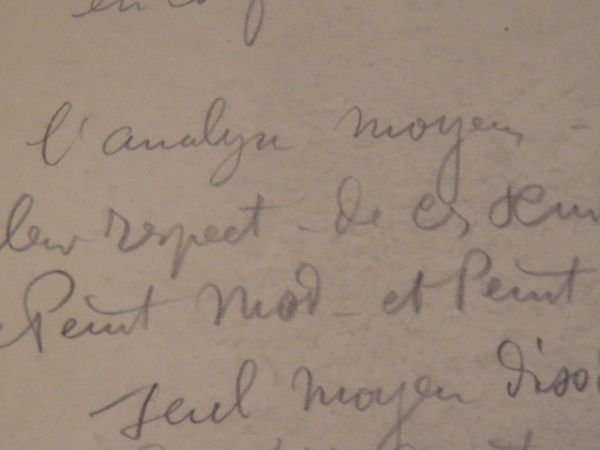 l'analyse moyen -
leur respect - de ces deux
Peint Mod - et Peint
seul moyen